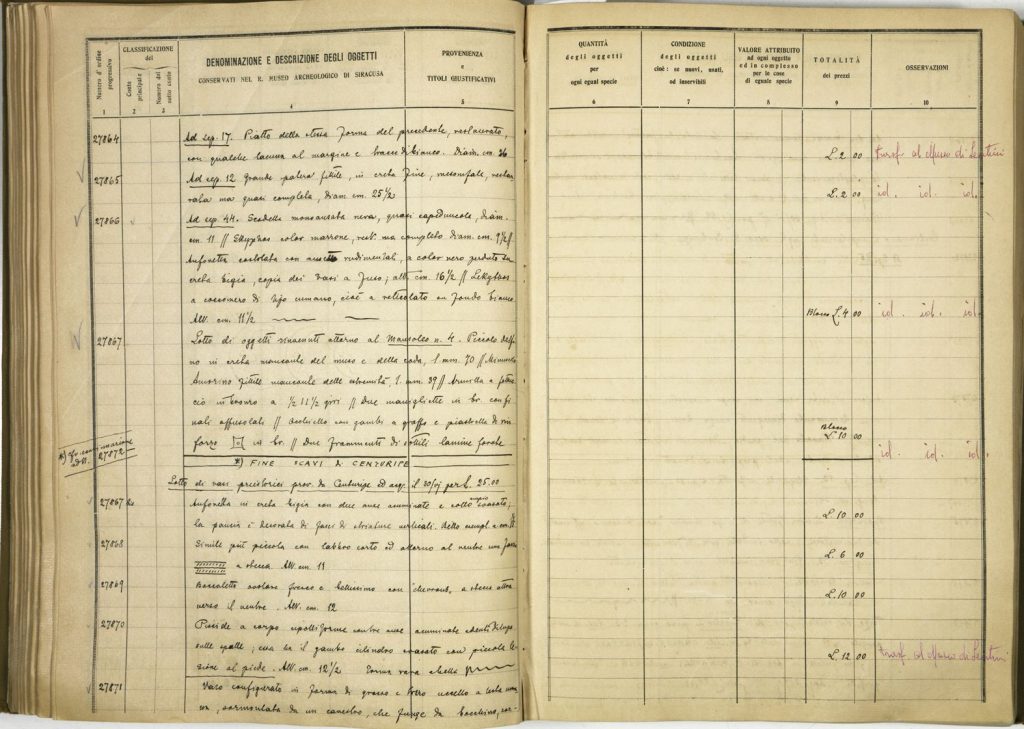 Numero d'ordine progressivo
CLASSIFICAZIONE
del
Conto principale
Numero del sotto conto
DENOMINAZIONE E DESCRIZIONE DEGLI OGGETTI
CONSERVATI NEL R. MUSEO ARCHEOLOGICO DI SIRACUSA
PROVENIENZA
e
TITOLI GIUSTIFICATIVI
1 2 3 4 5
27864 Ad sep. 17. Piatto della stessa forma del precedente, restaurato,
con qualche lacuna al margine e tracce di bianco. Diam. cm. 26
27865 Ad sep. 12 Grande patera fittile, in creta fine, restau
rata ma quasi completa, diam. cm. 25 1/2
27866 Ad sep. 44. Scodella monoansata nera, quasi capeduncola, diam.
cm. 11 // Skyphos color marrone, rest. ma completo diam. cm. 9 1/2 //
Anfonetta costolata con rudimentali, a color nero perduto su
creta bigia, copia dei vasi a fuso; alt. cm. 16 1/2 // Lekythos
a di tipo cumano, cioè a reticolato su fondo bianco
Alt. cm. 11 1/2
27867 Lotto di oggetti rinvenuti attorno al Mausoleo n. 4. Piccolo delfi
no in creta mancante del muso e della coda, l. mm. 70 // Minuscolo
Amorino fittile mancante delle estremità, l. mm. 39 // Armilla a
in bronzo a giri // Due manigliette in br. con fi
nali // con gambo a graffa e piastrella di rin
forzo in br. // Due frammenti di sottili lamine
27872
*) FINE SCAVI di CENTURIPE
Lotto di vasi preistorici prov. da Centuripe ed acq. il per L. 25.00
27867 bis Anfonetta in creta bigia con due anse e collo ampio svasato;
la pancia è decorata di fasci di striature verticali.
27868 Simile più piccola con labbro corto ed attorno al ventre una fascia
a stecca. Alt. cm. 11
27869 fresco e bellissimo con chevrons, a stecca attra
verso il ventre. Alt. cm. 12
27870 Pisside a corpo con due anse
sulle spalle; essa ha il gambo cilindro svasato con piccola le
sione al piede. Alt. cm. 12 1/2 Forma rara e bella
27871 Vaso configurato in forma di grosso e uccello a testa
sormontata da un canestro, che funge da
QUANTITÀ
degli oggetti
per
ogni egual specie
CONDIZIONE
degli oggetti
cioè: se nuovi, usati,
od inservibili
VALORE ATTRIBUITO
ad ogni oggetto
ed in complesso
per le cose
di eguale specie
TOTALITÀ
dei prezzi
OSSERVAZIONI
6 7 8 9 10
L. 2 00 Trasf. al Museo di Lentini
L. 2 00 id. id. id.
Blocco L. 4 00 id. id. id.
Blocco
L. 10 00
id. id. id.
L. 10 00
L. 6 00
L. 10 00
L. 12 00 Trasf. al Museo di Lentini